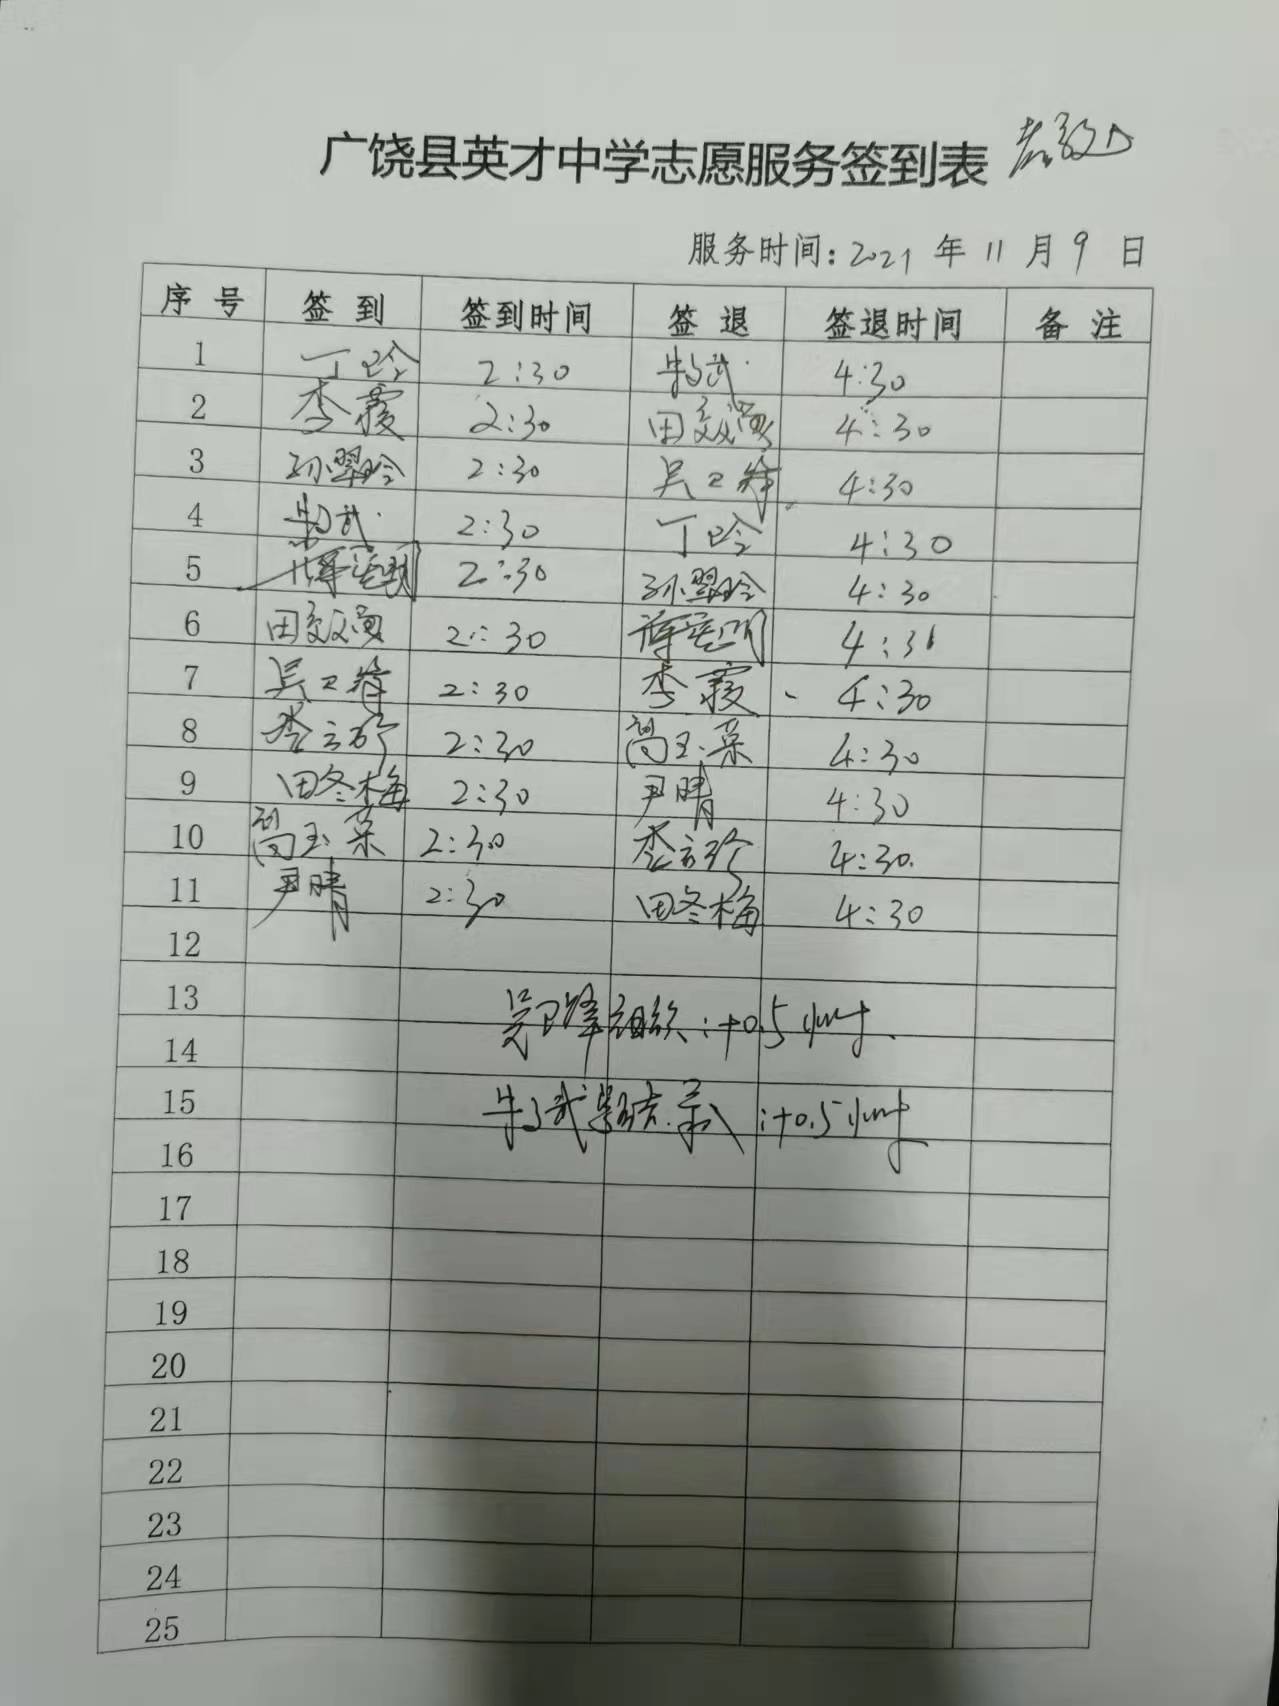 广饶县英才中学志愿服务签到表
服务时间:2021 年 11 月 9 日
序号 签到 签到时间 签退 签退时间 备注
1 丁玲 2:30 4:30
2 李霞 2:30 田 4:30
3 孙翠玲 2:30 吴卫锋 4:30
4 2:30 丁玲 4:30
5 2:30 孙翠玲 4:30
6 田 2:30 4:31
7 吴卫锋 2:30 李霞 4:30
8 李 2:30 玉荣 4:30
9 田冬梅 2:30 尹晴 4:30
10 玉荣 2:30 李 4:30
11 尹晴 2:30 田冬梅 4:30
12
13
吴卫锋 :+0.5小时
14
15
:+0.5小时
16
17
18
19
20
21
22
23
24
25